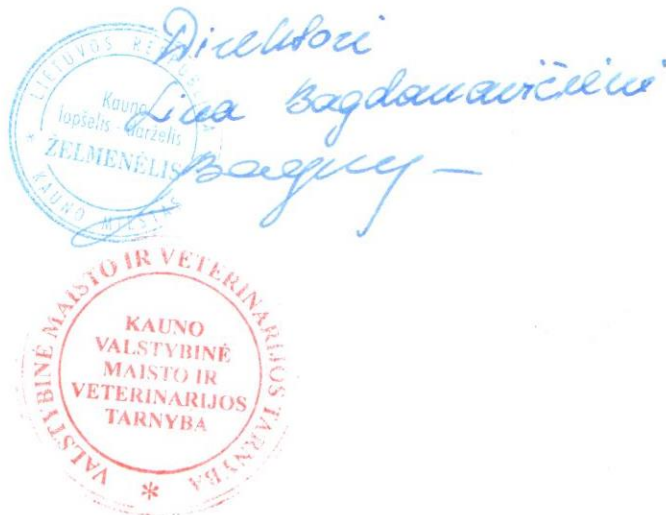 Direktorė
Lina Bagdanavičienė
LIETUVOS RESPUBLIKA
Kauno
lopšelis - darželis
ŽELMENĖLIS
* KAUNO MIESTAS
VALSTYBINĖ MAISTO IR VETERINARIJOS TARNYBA
KAUNO
VALSTYBINĖ
MAISTO IR
VETERINARIJOS
TARNYBA
*